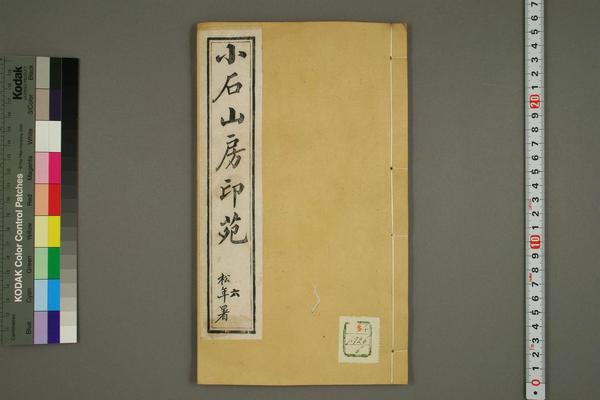 小石山房印苑
六
松年署
Kodak
KODAK Color Control Patches
Blue
Cyan
Green
Yellow
Red
Magenta
White
3/Color
Black
0 1 2 3 4 5 6 7 8 9 10 1 2 3 4 5 6 7 8 9 20 1 2 3 4 5 6 7